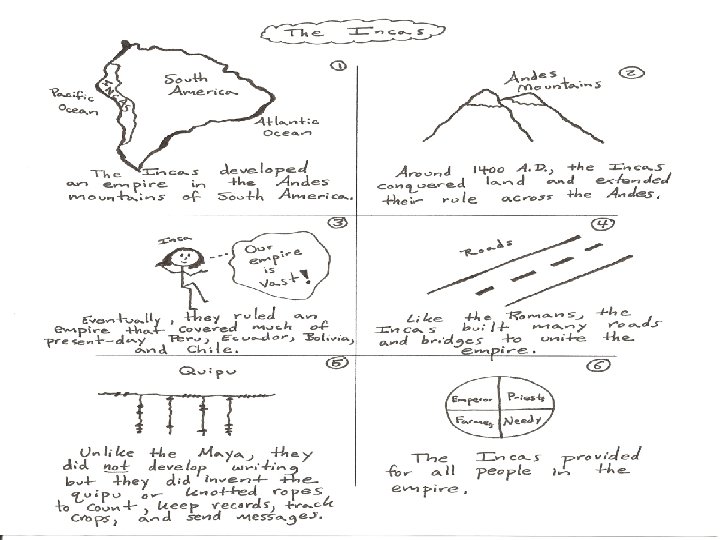 The Incas
①
Pacific
Ocean
INCAS
South
America
Atlantic
Ocean
The Incas developed
an empire in the Andes
mountains of South America.
②
Andes
Mountains
Around 1400 A.D., the Incas
conquered land and extended
their rule across the Andes.
③
Inca
Our
empire
is
vast!
Eventually, they ruled an
empire that covered much of
present-day Peru, Ecuador, Bolivia,
and Chile.
④
Roads
Like the Romans, the
Incas built many roads
and bridges to unite the
empire.
⑤
Quipu
Unlike the Maya, they
did not develop writing
but they did invent the
quipu or knotted ropes
to count, keep records, track
crops, and send messages.
⑥
Emperor Priests
Farmers Needy
The Incas provided
for all people in the
empire.